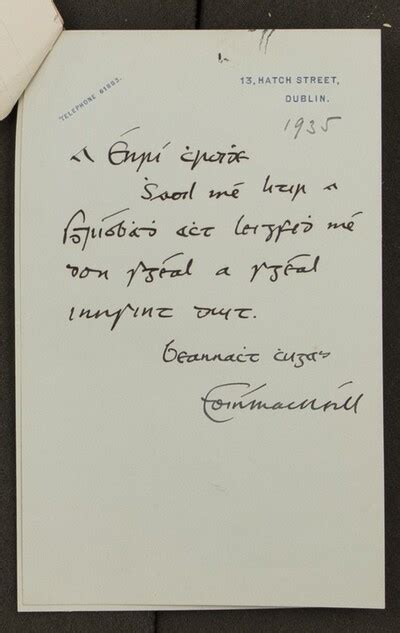 TELEPHONE
13, HATCH STREET,
DUBLIN.
1935
A Énrí ċroiḋe
Ṡaoil mé litir a
sgríoḃaḋ aċt leigfeḋ mé
don sgéal a sgéal
innsint duit.
Beannaċt ċugat
Eoin MacNéill